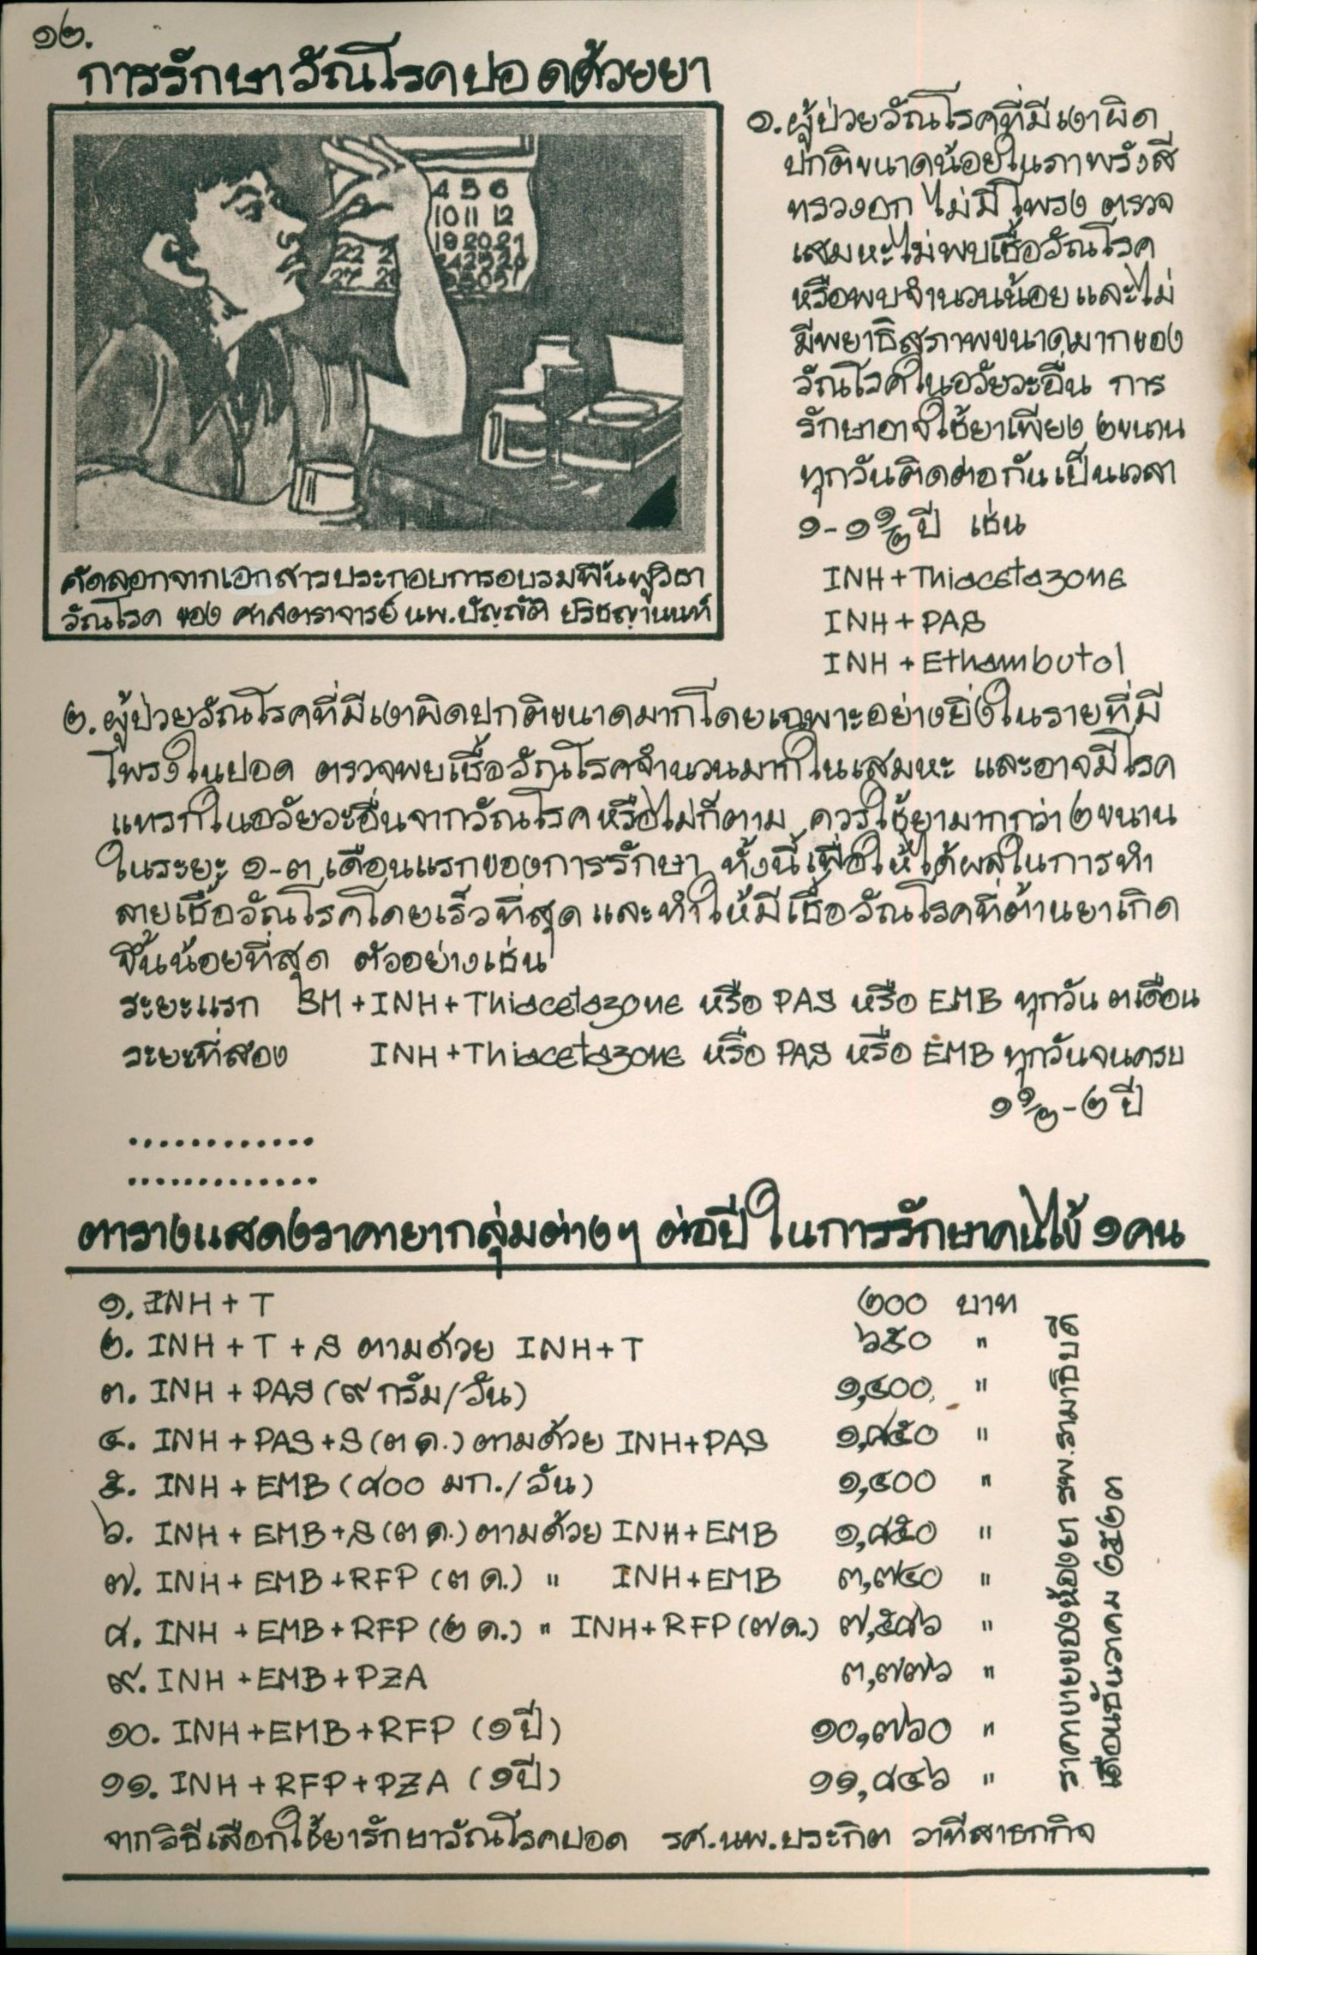 ๑๒.
การรักษาวัณโรคปอดด้วยยา
4 5 6
10 11 12
19 20 21
คัดลอกจากเอกสารประกอบการอบรมฟื้นฟูวิชา
วัณโรค ของ ศาสตราจารย์ นพ.บัญญัติ ปริชญานนท์
๑. ผู้ป่วยวัณโรคที่มีเงาผิด
ปกติขนาดน้อยในภาพรังสี
ทรวงอก ไม่มีโพรง ตรวจ
เสมหะไม่พบเชื้อวัณโรค
หรือพบจำนวนน้อย และไม่
มีพยาธิสภาพขนาดมากของ
วัณโรคในอวัยวะอื่น การ
รักษาอาจใช้ยาเพียง ๒ขนาน
ทุกวันติดต่อกันเป็นเวลา
๑-๑ ๑/๒ ปี เช่น
INH + Thiacetazone
INH + PAS
INH + Ethambutol
๒. ผู้ป่วยวัณโรคที่มีเงาผิดปกติขนาดมากโดยเฉพาะอย่างยิ่งในรายที่มี
โพรงในปอด ตรวจพบเชื้อวัณโรคจำนวนมากในเสมหะ และอาจมีโรค
แทรกในอวัยวะอื่นจากวัณโรคหรือไม่ก็ตาม ควรใช้ยามากกว่า ๒ขนาน
ในระยะ ๑-๓ เดือนแรกของการรักษา ทั้งนี้เพื่อให้ได้ผลในการทำ
ลายเชื้อวัณโรคโดยเร็วที่สุด และทำให้มีเชื้อวัณโรคที่ต้านยาเกิด
ขึ้นน้อยที่สุด ตัวอย่างเช่น
ระยะแรก SM + INH + Thiacetazone หรือ PAS หรือ EMB ทุกวัน ๓เดือน
ระยะที่สอง INH + Thiacetazone หรือ PAS หรือ EMB ทุกวันจนครบ
๑ ๑/๒ - ๒ ปี
............
............
ตารางแสดงราคายากลุ่มต่างๆ ต่อปี ในการรักษาคนไข้ ๑คน
๑. INH + T ๒๐๐ บาท
๒. INH + T + S ตามด้วย INH + T ๖๕๐ "
๓. INH + PAS (๙ กรัม/วัน) ๑,๔๐๐ "
๔. INH + PAS + S (๓ ด.) ตามด้วย INH + PAS ๑,๘๕๐ "
๕. INH + EMB (๘๐๐ มก./วัน) ๑,๔๐๐ "
๖. INH + EMB + S (๓ ด.) ตามด้วย INH + EMB ๑,๘๕๐ "
๗. INH + EMB + RFP (๓ ด.) " INH + EMB ๓,๗๔๐ "
๘. INH + EMB + RFP (๒ ด.) " INH + RFP (๗ด.) ๗,๕๘๖ "
๙. INH + EMB + PZA ๓,๗๗๖ "
๑๐. INH + EMB + RFP (๑ปี) ๑๐,๗๖๐ "
๑๑. INH + RFP + PZA (๑ปี) ๑๑,๘๔๖ "
ราคาขายของห้องยา รพ.รามาธิบดี
เดือนธันวาคม ๒๕๒๓
จากวิธีเลือกใช้ยารักษาวัณโรคปอด รศ.นพ.ประกิต วาทีสาธกกิจ